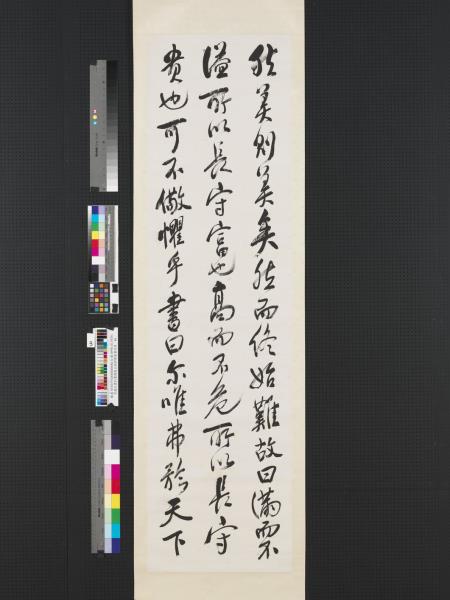 然美則美矣然而終始難故曰滿而不
溢所以長守富也高而不危所以長守
貴也可不儆懼乎書曰尔唯弗矜天下